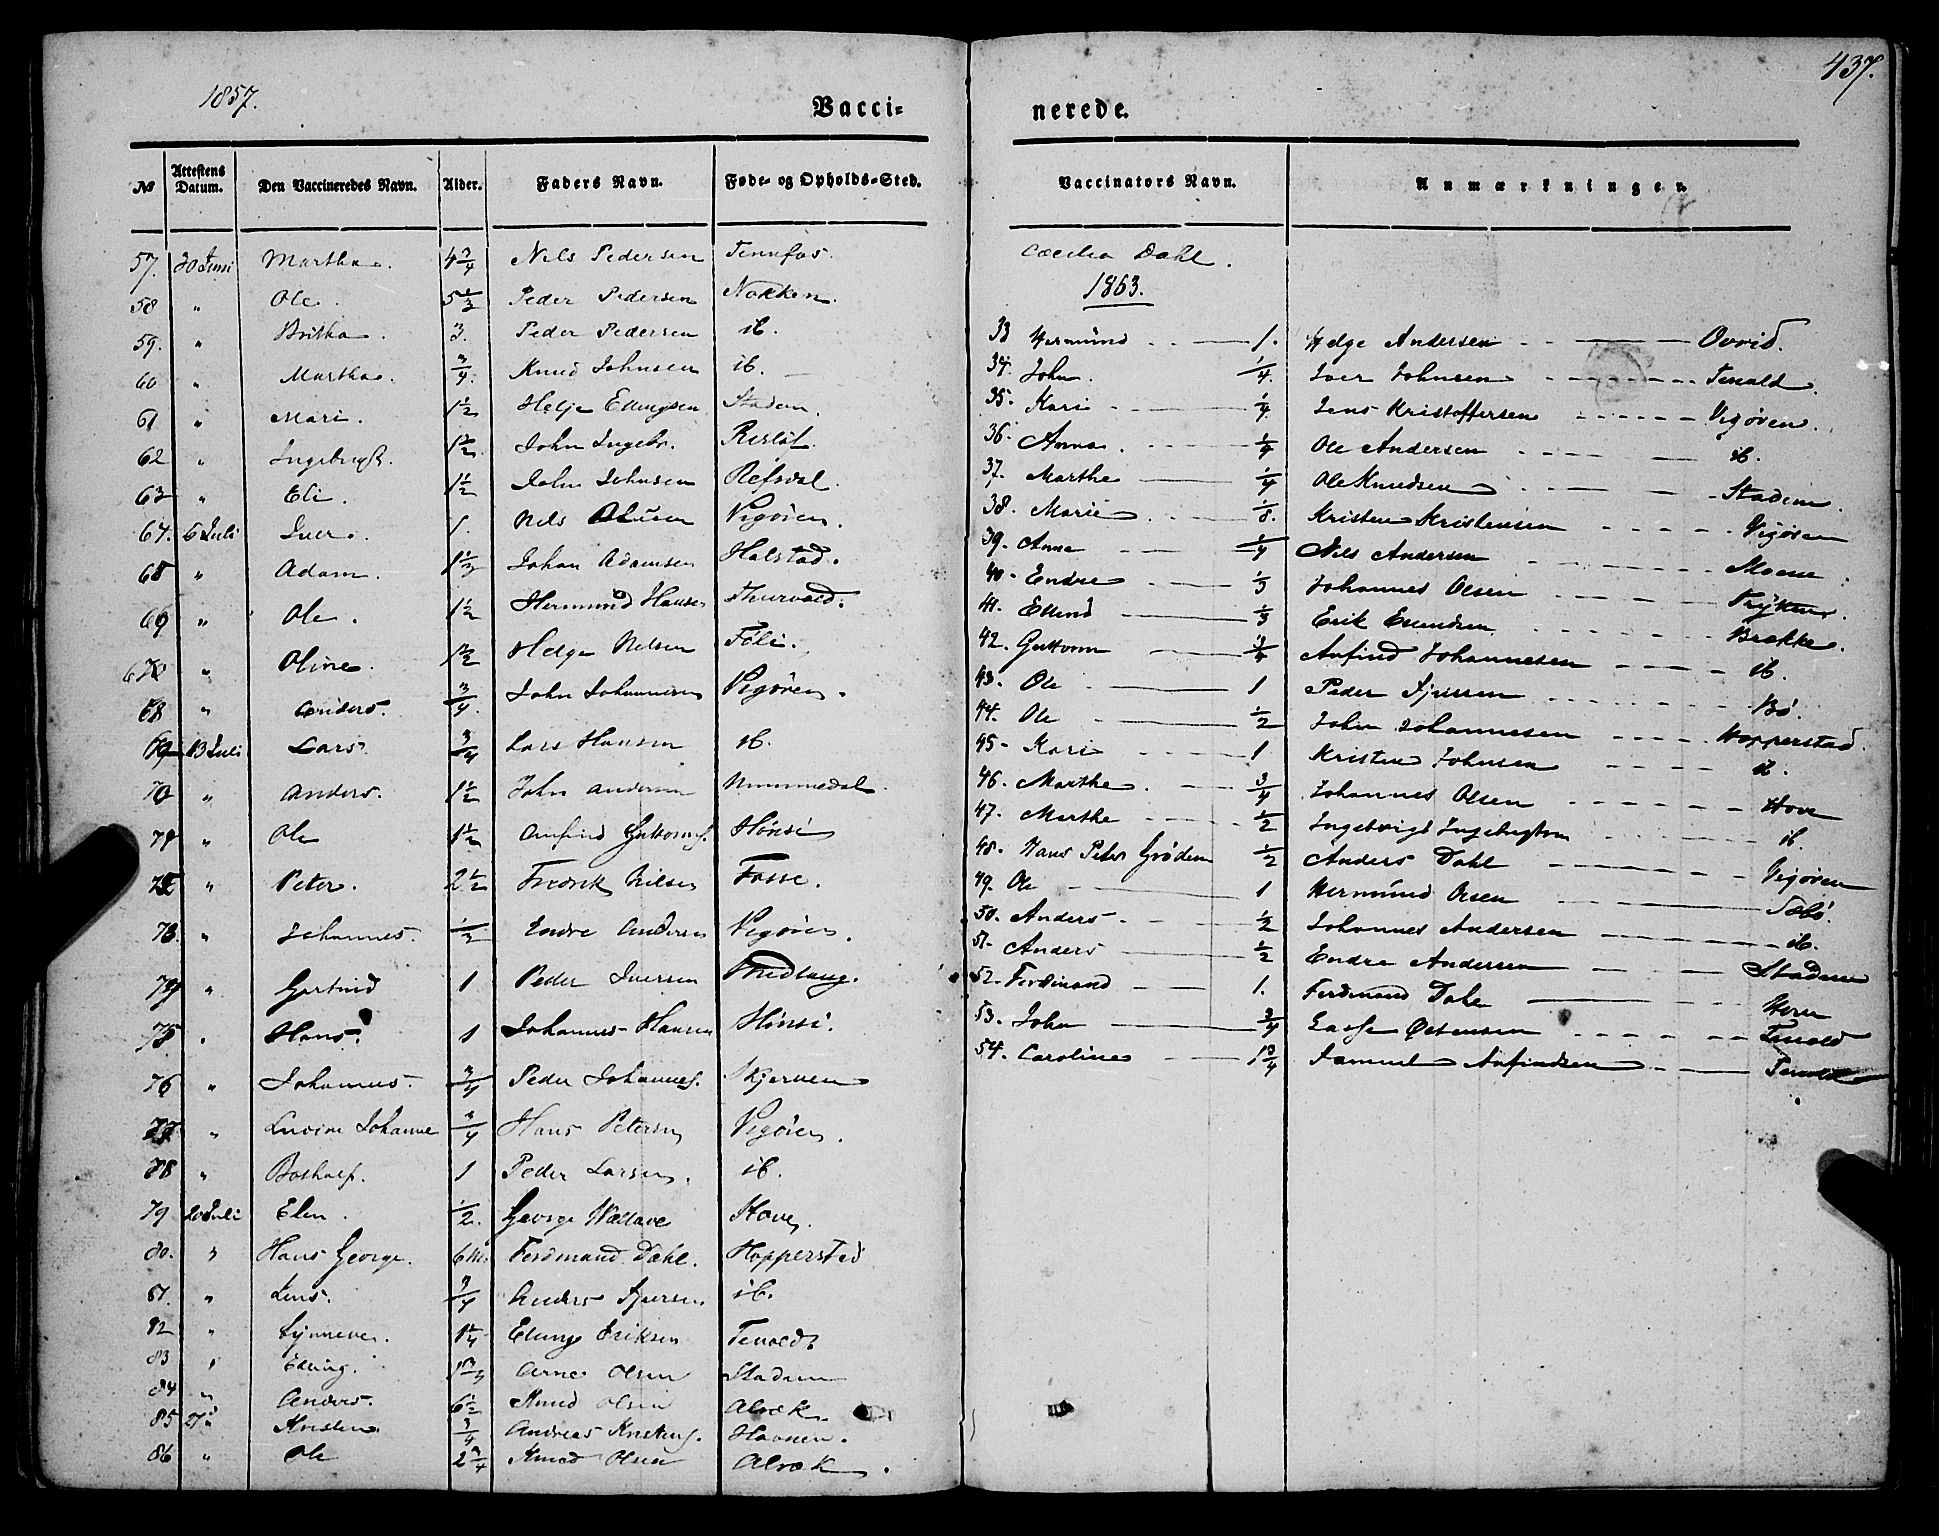 1857.
437.
Vacci=
nerede.
№ Attestens Datum. Den Vaccineredes Navn. Alder. Faders Navn. Føde- og Opholds-Sted.
57. 30 Juni Martha. 4 3/4 Nils Pedersen Tennfos.
58 " Ole. 5 1/2 Peder Pedersen Nokken.
59. " Britha. 3. Peder Pedersen ib.
60 " Martha. 3/4. Knud Johnsen ib.
61 " Mari. 1 1/2 Helje Ellingsen Stadem.
62 " 1 1/2 John Ingebr.
63 " Eli. 1 1/2 John Johnsen Refsdal.
64. 6 Juli Iver. 1. Nils Olsen Vigøren.
65 " Adam. 1 1/2 Johan Adamsen Halstad.
66 " Ole. 1 1/2 Hermund Hansen Thurvold.
67 " Oline. 1 1/2 Helge Nelsen Föli.
68 " Anders. 3/4. John Johannesen Vigøren.
69 13 Juli Lars. 3/4 Lars Hansen ib.
70 " Anders. 1 1/2 John Andersen Nummedal.
71 " Ole 1 1/2 Anfind Guttormss. Hønsi
72 " Peter. 2 1/2 Fredrik Nilsen Fosse.
73. " Johannes. 1/2 Endre Andersen Vigøren.
74 " Gertrud 1 Peder Iversen
75 " Hans. 1 Johannes Hansen Hønsi.
76 " Johannes. 3/4 Peder Johannes. Skjerven
77 " Johanne 3/4 Hans Petersen Vigøren.
78 " 1 Peder Larsen. ib.
79 20 Juli Elen. 1/2. George Wallace Hove.
80. " Hans George. 6 M. Ferdinand Dahl. Hopperstad
81. " Jens. 3/4 Anders ib.
82 " Synneve. 1 1/4 Elling Eriksen Tenold
83 " Elling. Arne Olsen Stadem
84 " Anders. 6 1/2 Knud Olsen Alræk.
85 27 " Kristen. 3/4 Andreas Kristens. Hovnen.
86 " Ole 2 3/4 Knud Olsen Alræk.
Vaccinators Navn. Anmærkninger.
Cæcilia Dahl.
1863.
33 Hermund 1. Helge Andersen Ovrid.
34. John. 1/4. Iver Johnsen Tenold.
35. Kari 1/4. Jens Kristoffersen Vigøren.
36. Anna. 1/4 Ole Andersen ib.
37. Marthe 1/4 Ole Knudsen Stadem.
38. Marie 1/8. Kristen Kristensen Vigøren
39. Anne 1/4 Nils Andersen Moene.
40. Endre 1/3 Johannes Olsen
41. Ellend 1/3 Erik Erendsen Brekke.
42. Guttorm Anfind Johannesen ib.
43. Ole 1 Peder Bø.
44. Ole 1/2 John Johannesen Hopperstad.
45. Kari 1 Kristen Johnsen ib.
46. Marthe. 3/4 Johannes Olsen Hove
47. Marthe 1/2 ib.
48. Hans Peter Grödem 1/2 Anders Dahl Vigøren
49. Ole 1 Hermund Olsen Sæbö.
50. Anders 1/2 Johannes Andersen ib.
51. Anders 1/2 Endre Andersen Stadem
52. Ferdinand 1. Ferdinand Dahl Hove
53. John 3/4 Lasse Østensen Tenold
54. Caroline 1 3/4 Samuel Anfindsen Tenold